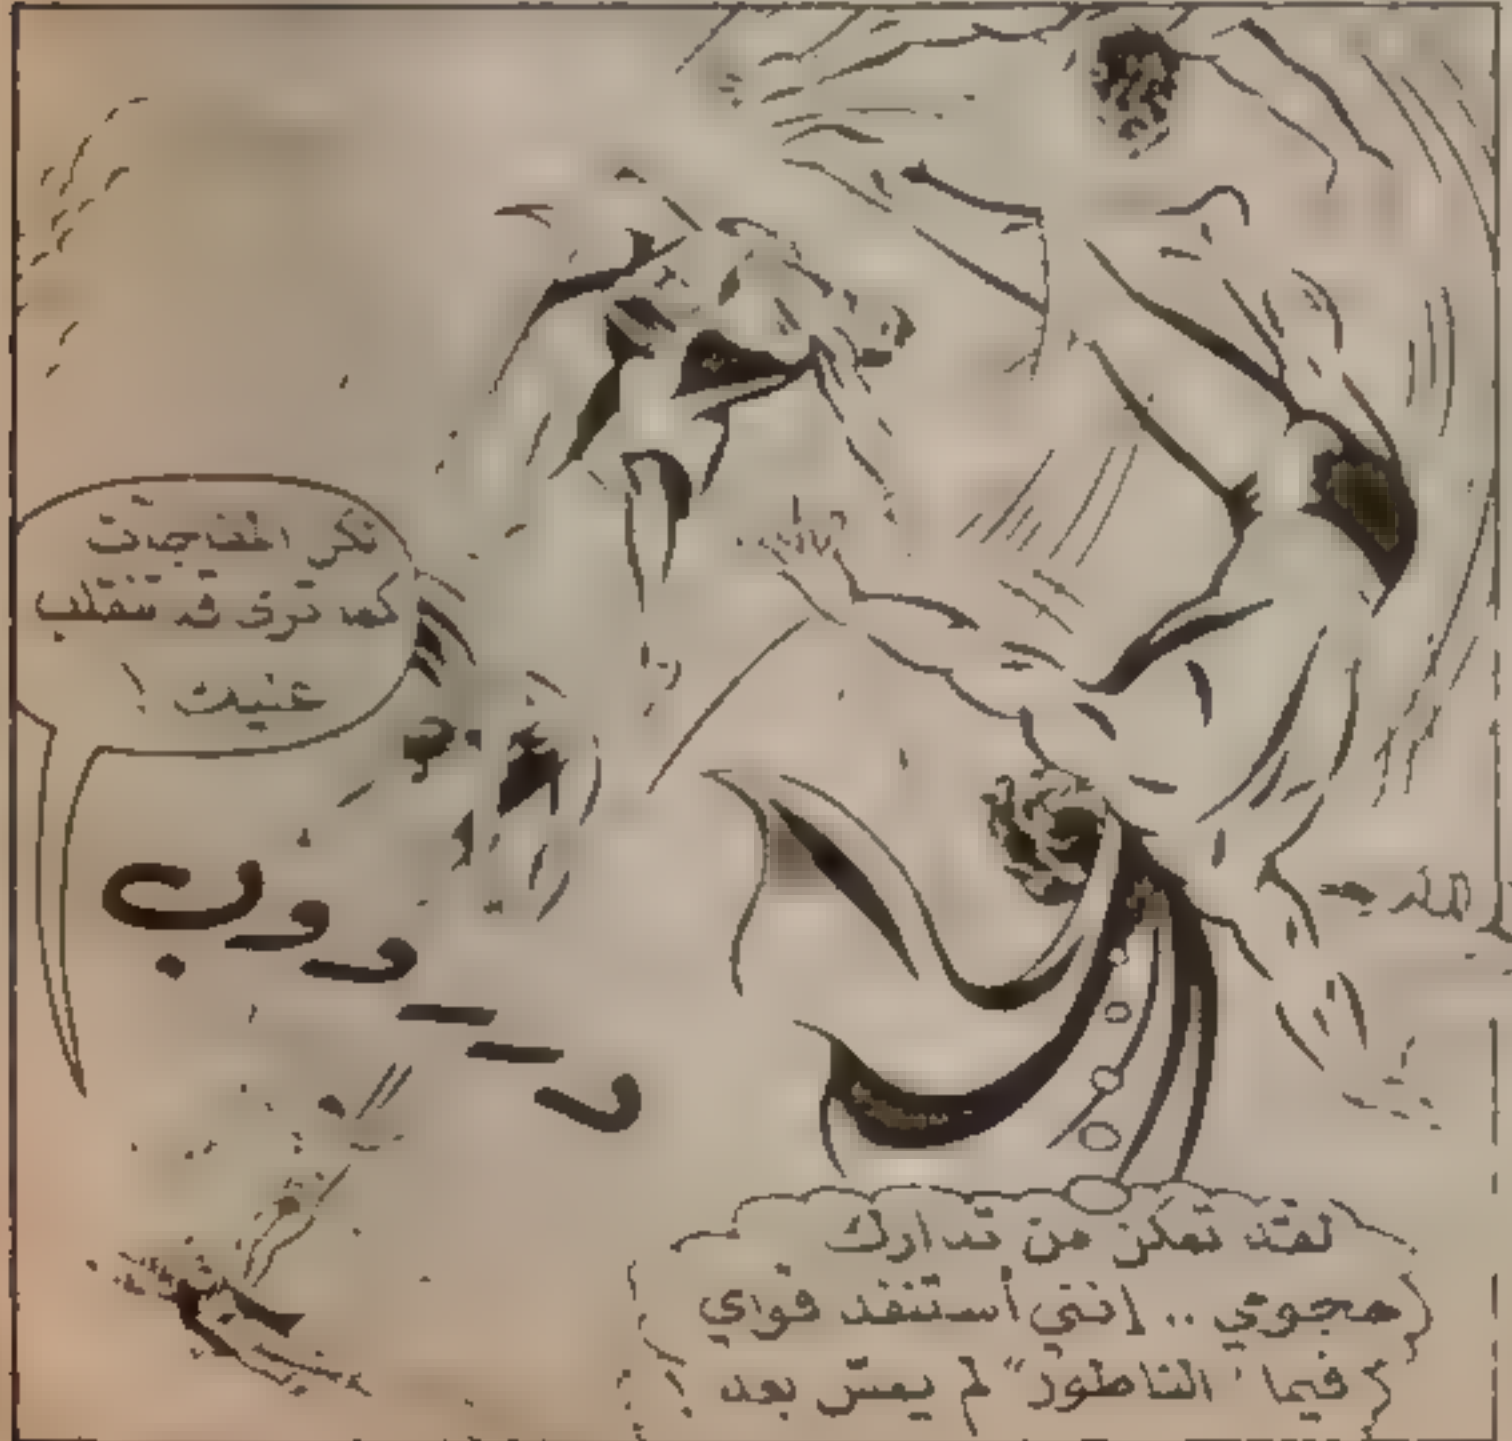 لكن المفاجآت
كما ترى قد تنقلب
عليك !
لقد تمكن من تدارك
هجومي .. إنني أستنفد قواي
فيما "الناطور" لم يمسّ بعد !